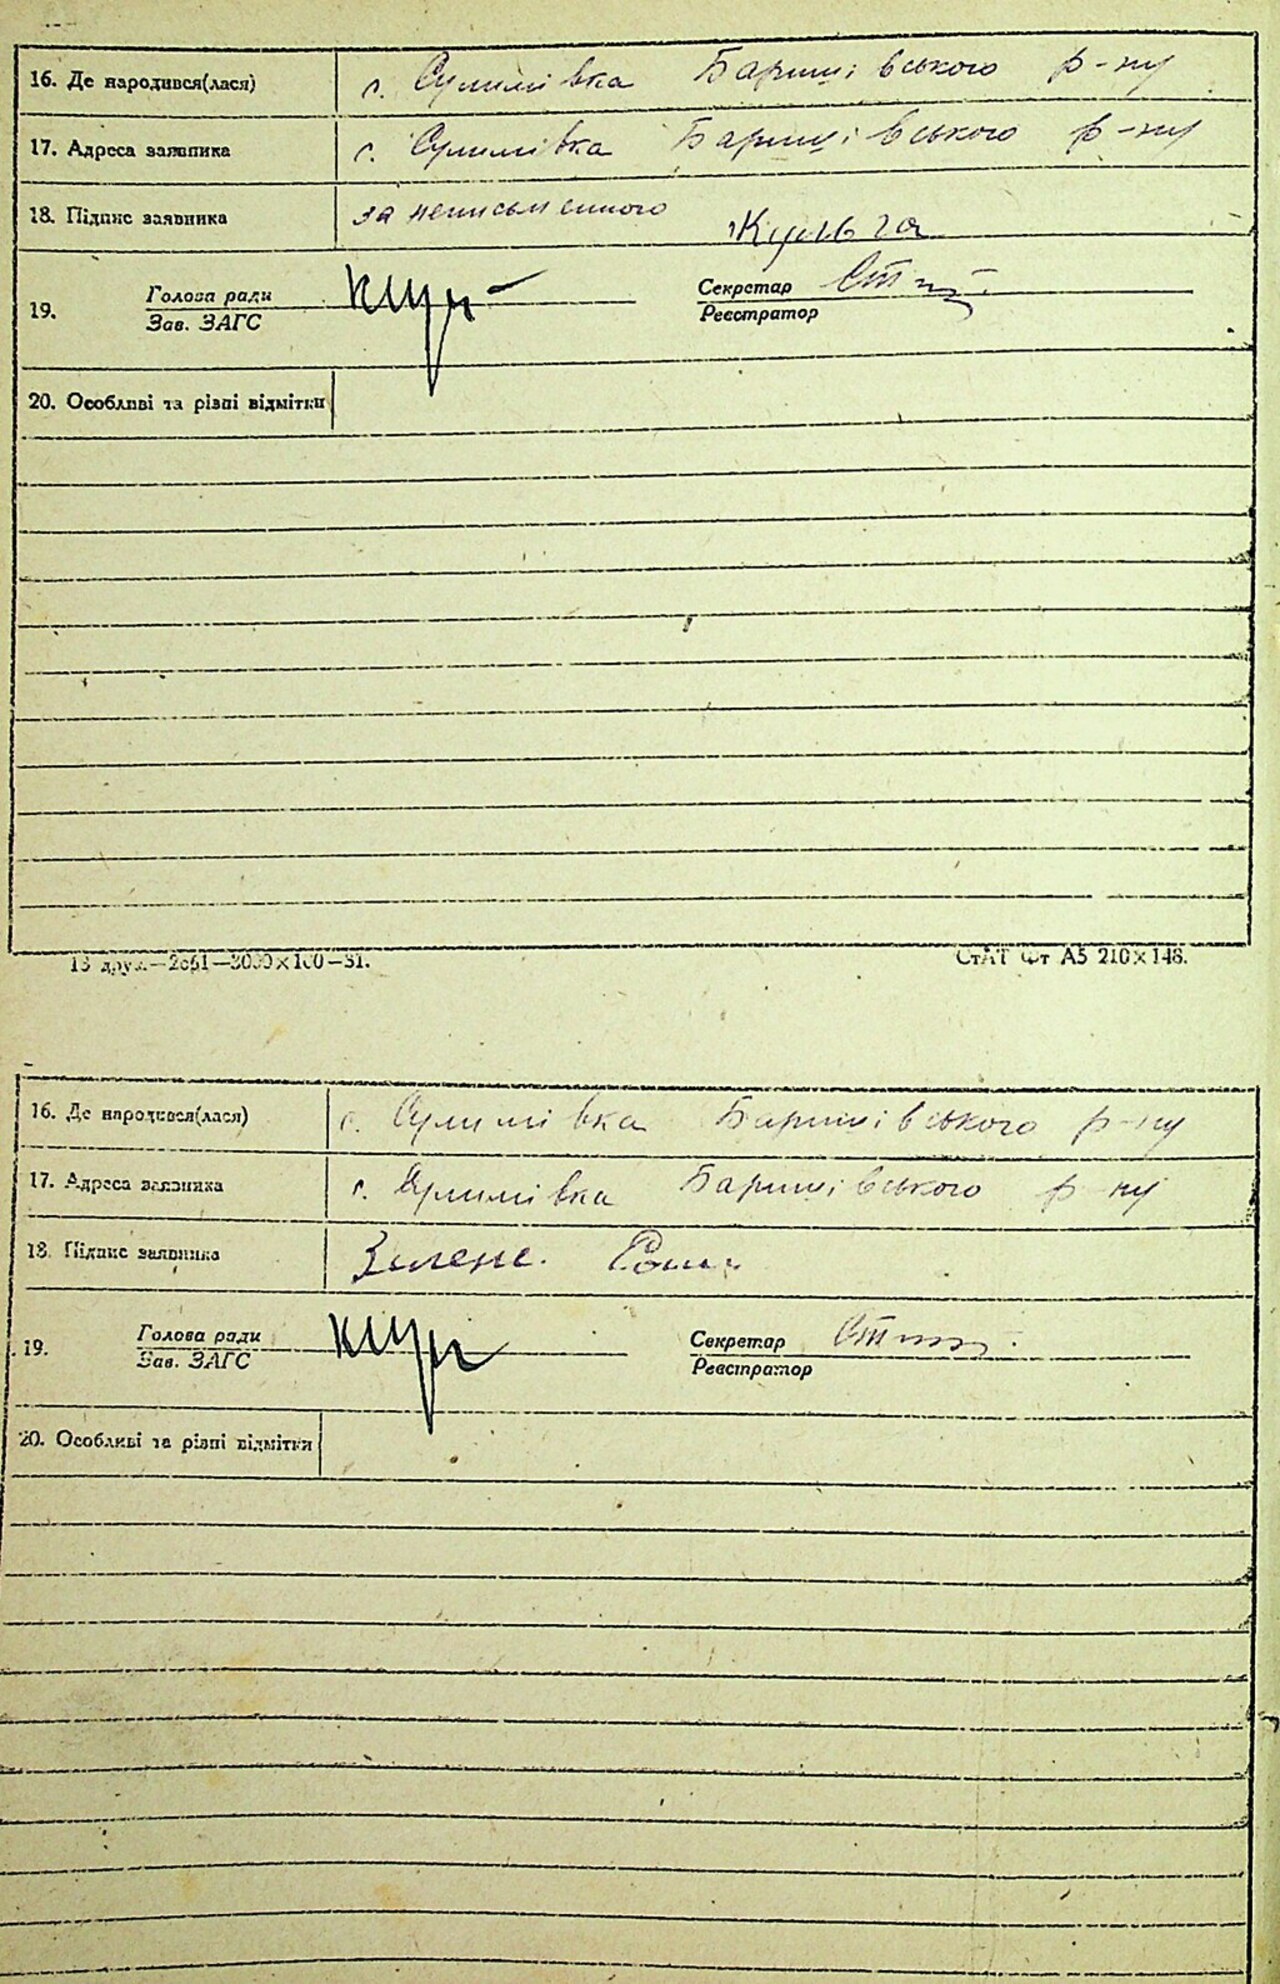 16. Де народився(лася) с. Сулимівка Баришівського р-ну
17. Адреса заявника с. Сулимівка Баришівського р-ну
18. Підпис заявника за неписьменного Кульга
Голова ради Секретар
19. Зав. ЗАГС Реєстратор
20. Особливі та різні відмітки
13 друк.—2661—3000×100—31. СтАТ Фт А5 210×148.
16. Де народився(лася) с. Сулимівка Баришівського р-ну
17. Адреса заявника с. Сулимівка Баришівського р-ну
18. Підпис заявника Зелене.
Голова ради Секретар
19. Зав. ЗАГС Реєстратор
20. Особливі та різні відмітки